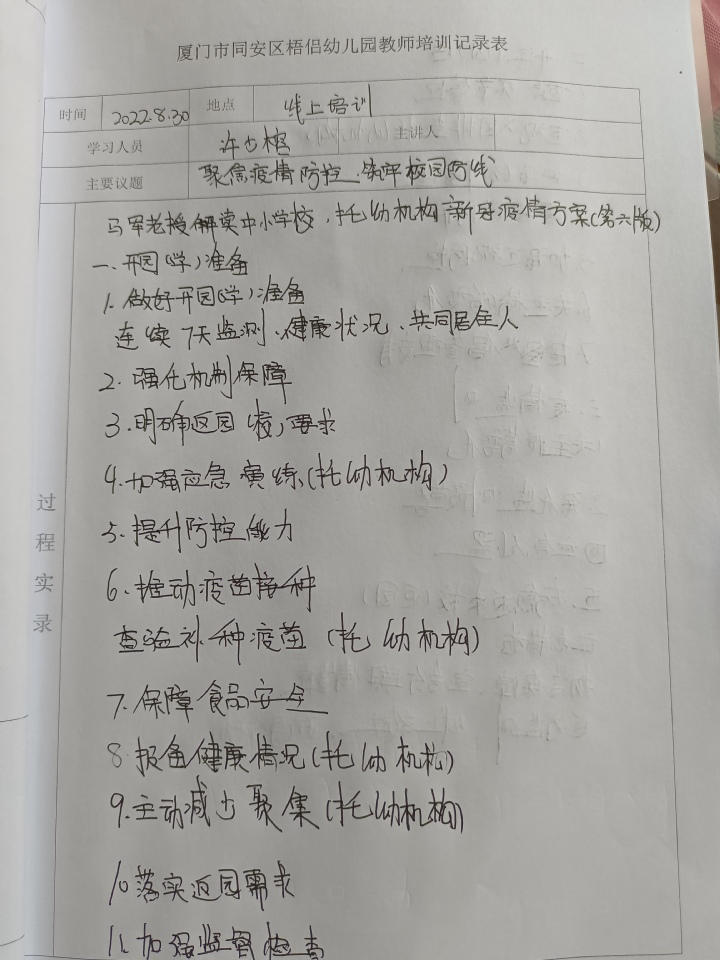 厦门市同安区梧侣幼儿园教师培训记录表
时间 2022.8.30 地点 线上培训
学习人员 许少榕 主讲人
主要议题 聚焦疫情防控,筑牢校园防线
过程实录
马军老授解读中小学校,托幼机构新冠疫情方案(第六版)
一、开园(学)准备
1. 做好开园(学)准备
连续7天监测、健康状况、共同居住人
2. 强化机制保障
3. 明确返园(校)要求
4. 加强应急演练(托幼机构)
5. 提升防控能力
6. 推动疫苗接种
查验补种疫苗(托幼机构)
7. 保障食品安全
8. 报备健康情况(托幼机构)
9. 主动减少聚集(托幼机构)
10 落实返园需求
11. 加强监督检查